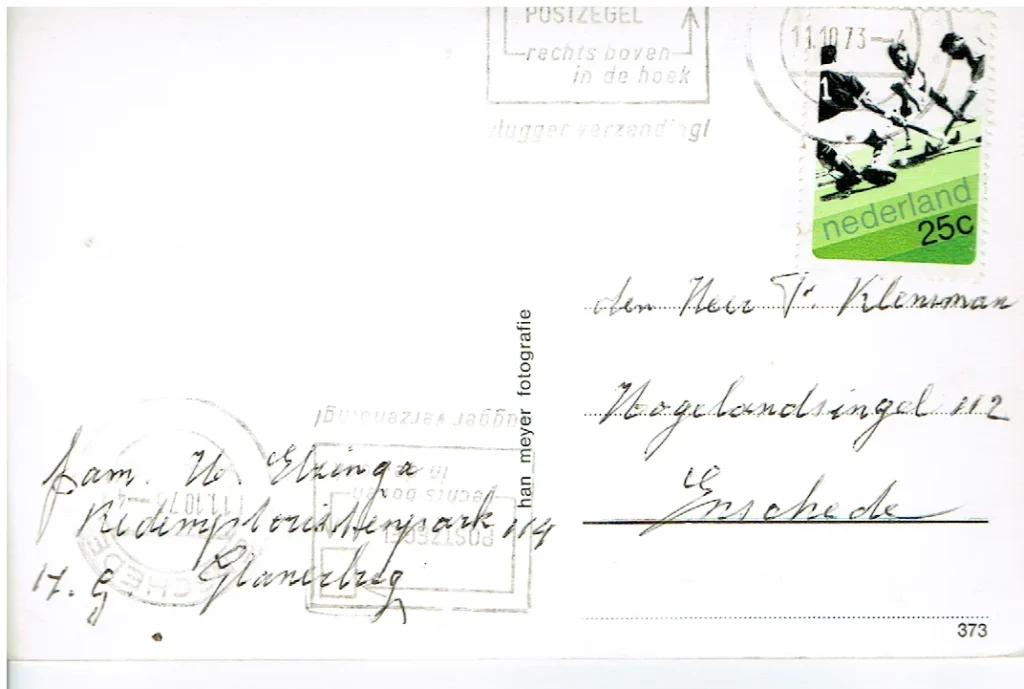 POSTZEGEL
rechts boven
in de hoek
vlugger verzending!
11.10.73-4
1
nederland
25c
den Heer P. Klensman
Vogelandsingel 112
Enschede
han meyer fotografie
vlugger verzending!
in de hoek
rechts boven
POSTZEGEL
11.10.73-4
ENSCHEDE
fam. W. Elzinga
Redemptoristenpark 114
H. G. Glanerbrug
373